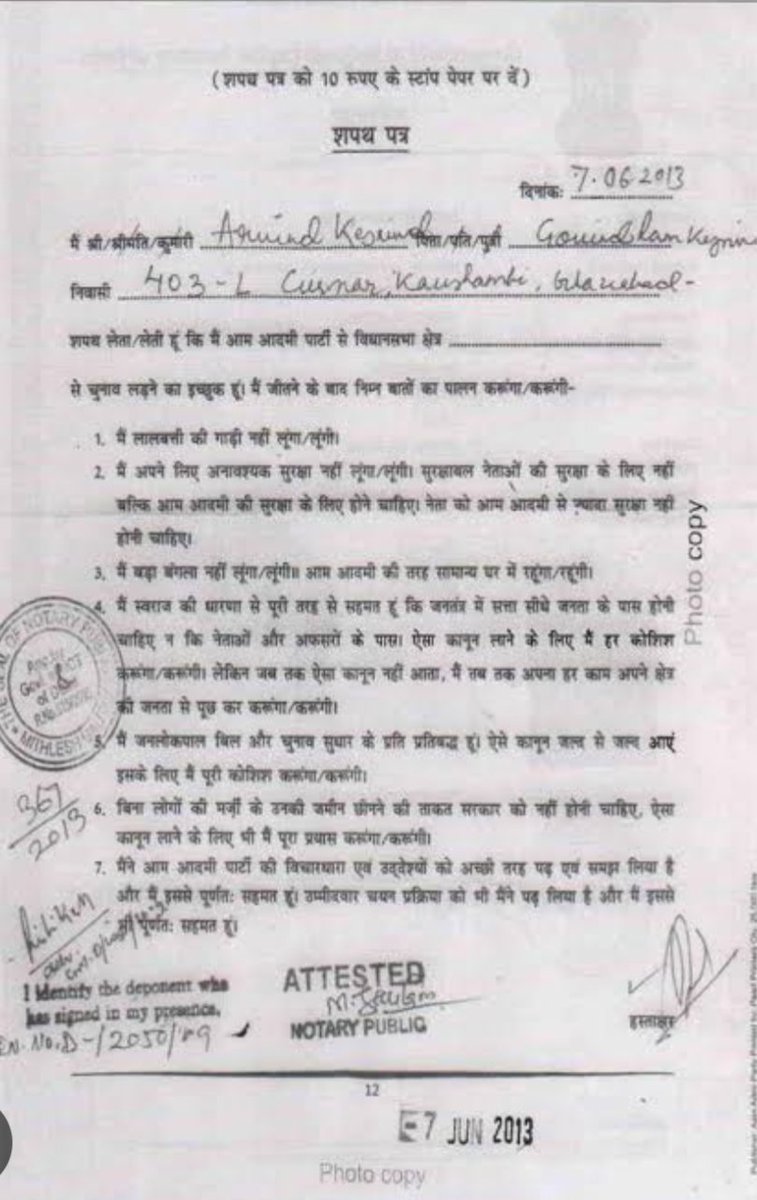 (शपथ पत्र को 10 रुपए के स्टांप पेपर पर दें)
शपथ पत्र
दिनांक: 7.06.2013
मैं श्री/श्रीमति/कुमारी Arvind पिता/पति/पुत्री
निवासी 403-L Kaushambi,
शपथ लेता/लेती हूं कि मैं आम आदमी पार्टी से विधानसभा क्षेत्र
से चुनाव लड़ने का इच्छुक हूं। मैं जीतने के बाद निम्न बातों का पालन करूंगा/करूंगी-
1. मैं लालबत्ती की गाड़ी नहीं लूंगा/लूंगी।
2. मैं अपने लिए अनावश्यक सुरक्षा नहीं लूंगा/लूंगी। सुरक्षाबल नेताओं की सुरक्षा के लिए नहीं
बल्कि आम आदमी की सुरक्षा के लिए होने चाहिए। नेता को आम आदमी से ज्यादा सुरक्षा नही
होनी चाहिए।
3. मैं बड़ा बंगला नहीं लूंगा/लूंगी॥ आम आदमी की तरह सामान्य घर में रहूंगा/रहूंगी।
4. मैं स्वराज की धारणा से पूरी तरह से सहमत हूं कि जनतंत्र में सत्ता सीधे जनता के पास होनी
चाहिए न कि नेताओं और अफसरों के पास। ऐसा कानून लाने के लिए मैं हर कोशिश
करूंगा/करूंगी। लेकिन जब तक ऐसा कानून नहीं आता, मैं तब तक अपना हर काम अपने क्षेत्र
की जनता से पूछ कर करूंगा/करूंगी।
5. मैं जनलोकपाल बिल और चुनाव सुधार के प्रति प्रतिबद्ध हूं। ऐसे कानून जल्द से जल्द आएं
इसके लिए मैं पूरी कोशिश करूंगा/करूंगी।
6. बिना लोगों की मर्ज़ी के उनकी जमीन छीनने की ताकत सरकार को नहीं होनी चाहिए, ऐसा
कानून लाने के लिए भी मैं पूरा प्रयास करूंगा/करूंगी।
7. मैंने आम आदमी पार्टी की विचारधारा एवं उद्देश्यों को अच्छी तरह पढ़ एवं समझ लिया है
और मैं इससे पूर्णत: सहमत हूं। उम्मीदवार चयन प्रक्रिया को भी मैंने पढ़ लिया है और मैं इससे
भी पूर्णत: सहमत हूं।
Photo copy
NOTARY PUBLIC
MITHLESH
367
2013
I Identify the deponent who
has signed in my presence.
En. No. D-/2050/
ATTESTED
NOTARY PUBLIC
हस्ताक्षर
12
7 JUN 2013
Photo copy